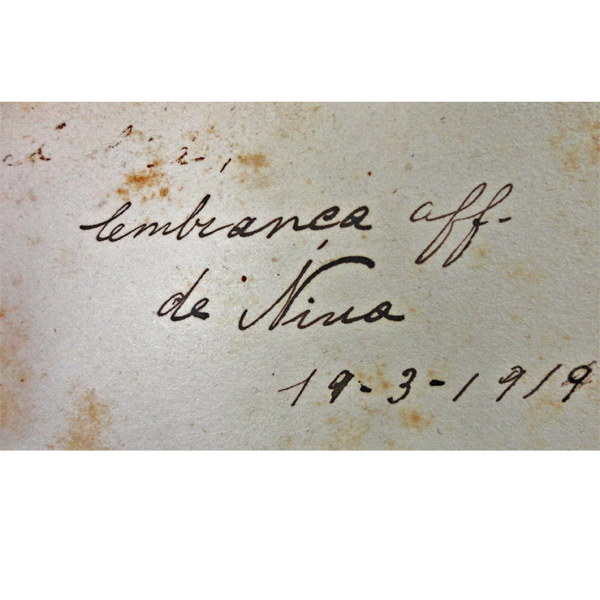 lembrança aff.
de Nina
19-3-1919